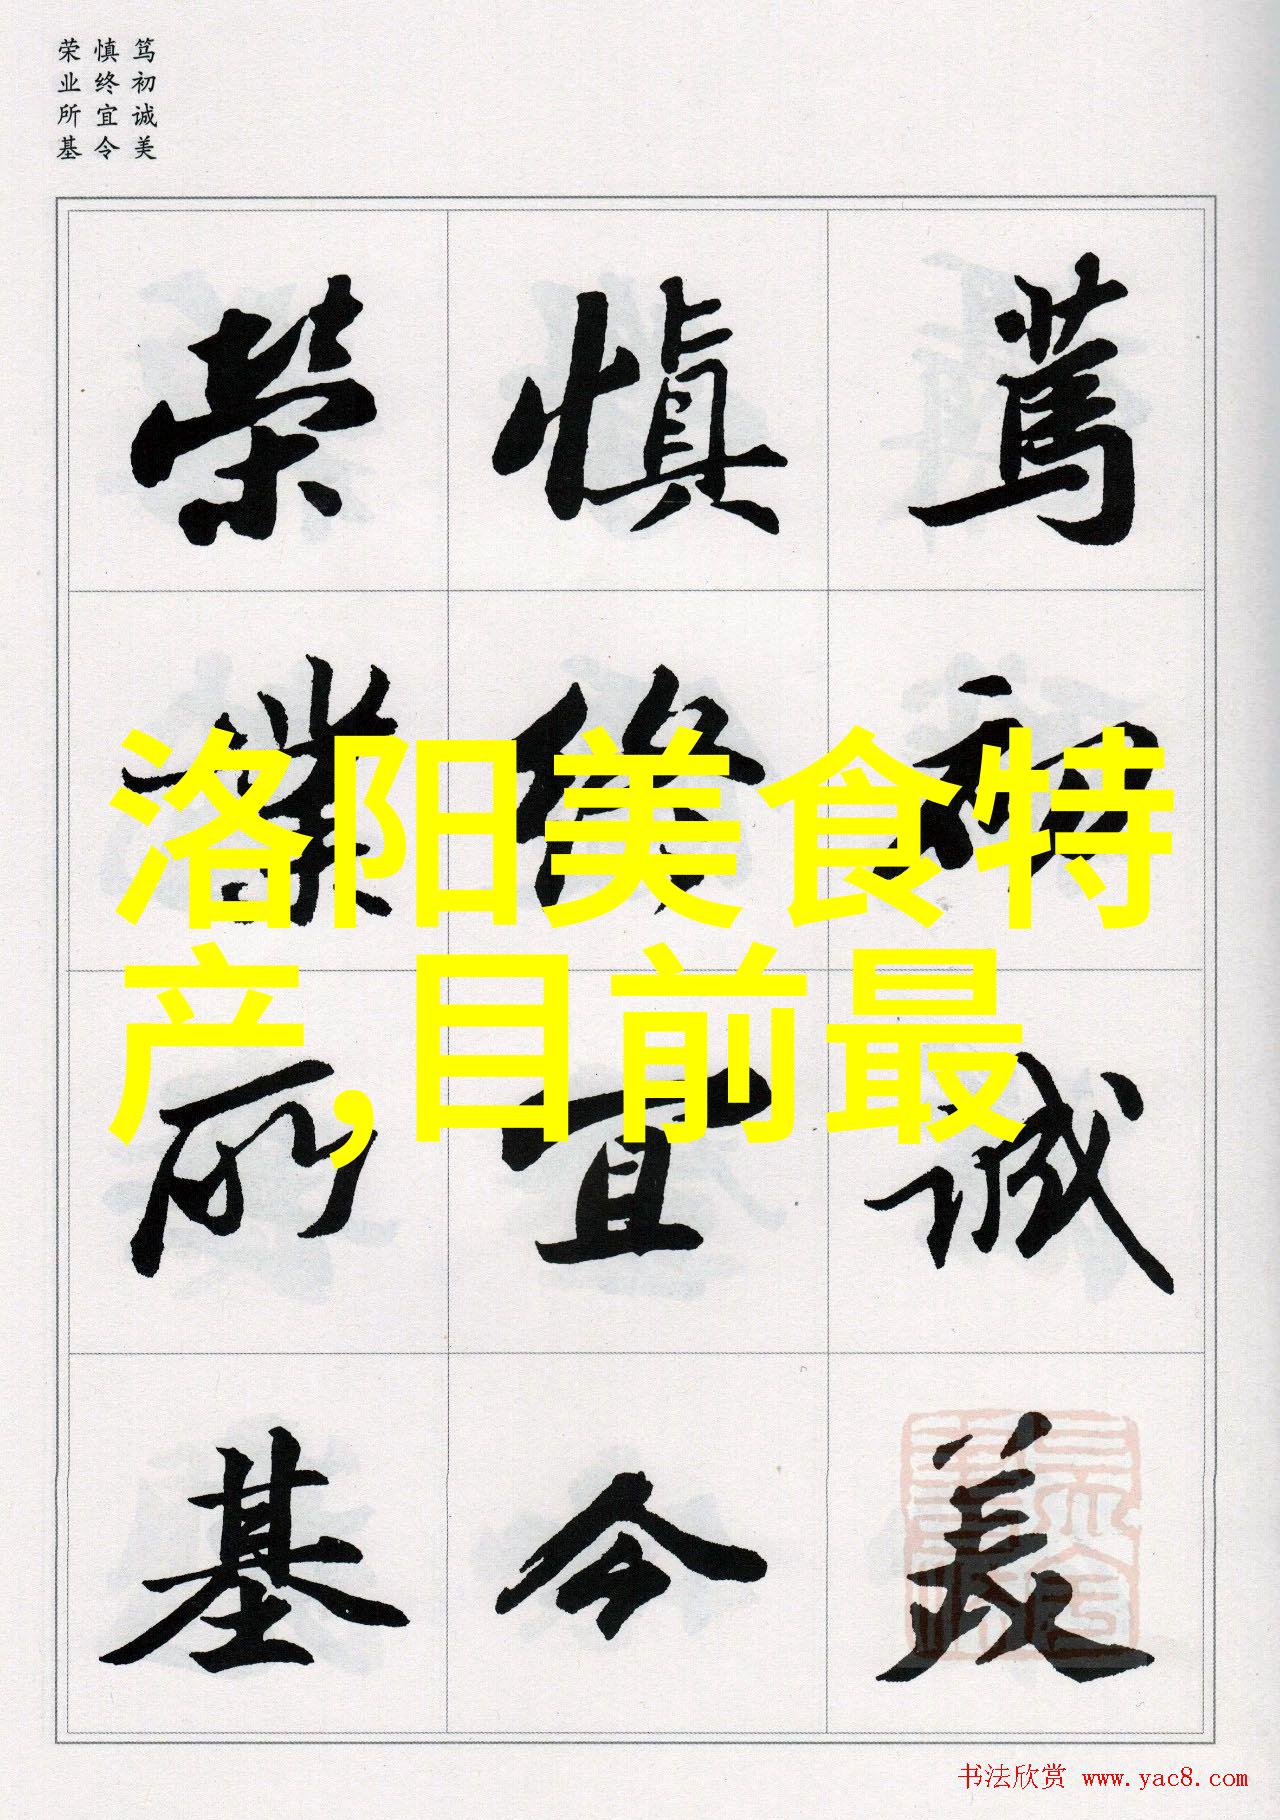 笃初诚美
慎终宜令
荣业所基
洛阳美食特
产,目前最
篤初誠美
慎終宜令
榮業所基
书法欣赏 www.yac8.com